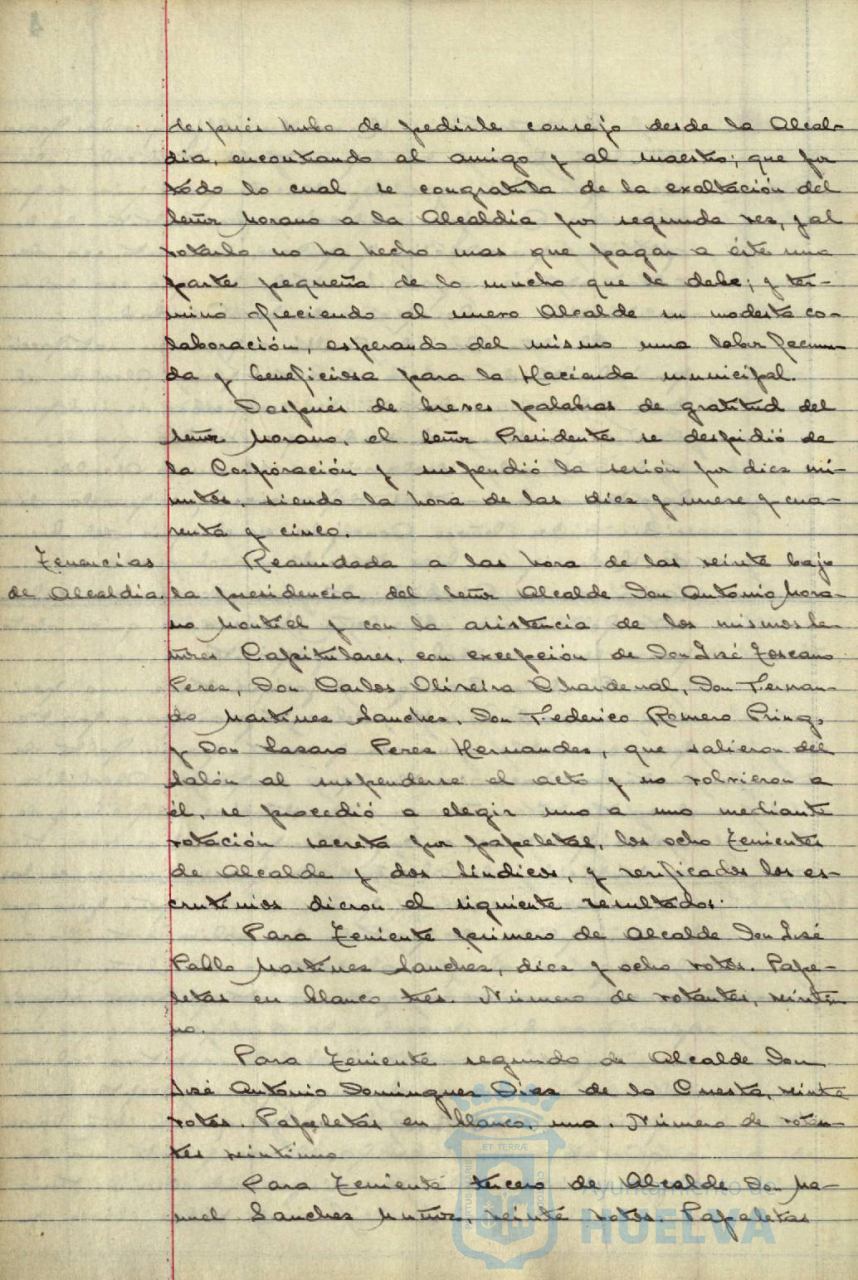 después hubo de pedirle consejo desde la Alcal-
dia, encontrando al amigo y al maestro; que por
todo lo cual se congratula de la exaltación del
Señor Morano a la Alcaldía por segunda vez, y al
votarlo no ha hecho mas que pagar a éste una
parte pequeña de lo mucho que le debe; y ter-
minó ofreciendo al nuevo Alcalde su modesta co-
laboración, esperando del mismo una labor fecun-
da y beneficiosa para la Hacienda municipal.
Después de breves palabras de gratitud del
Señor Morano, el Señor Presidente se despidió de
la Corporación y suspendió la sesión por diez mi-
nutos, siendo la hora de las diez y nueve y cua-
renta y cinco.
Tenencias
de Alcaldía.
Reanudada a las hora de las veinte bajo
la presidencia del Señor Alcalde Don Antonio Mora-
no Montiel y con la asistencia de los mismos Se-
ñores Capitulares, con excepción de Don José Toscano
Perez, Don Carlos Oliveira Chardenal, Don Fernan-
do Martinez Sanchez, Don Federico Romero Pring,
y Don Lazaro Perez Hernandez, que salieron del
Salón al suspenderse el acto y no volvieron a
él, se procedió a elegir uno a uno mediante
votación secreta por papeletas, los ocho Tenientes
de Alcalde y dos Síndicos, y verificados los es-
crutinios dieron el siguiente resultados.
Para Teniente primero de Alcalde Don José
Pablo Martinez Sanchez, diez y ocho votos. Pape-
letas en blanco tres. Número de votantes, veintiu-
no.
Para Teniente segundo de Alcalde Don
José Antonio Dominguez Diaz de la Cuesta, veinte
votos. Papeletas en blanco, una. Número de votan-
tes veintiuno
Para Teniente tercero de Alcalde Don Ma-
nuel Sanchez Muñoz, veinte votos. Papeletas
Ayuntamiento de
HUELVA